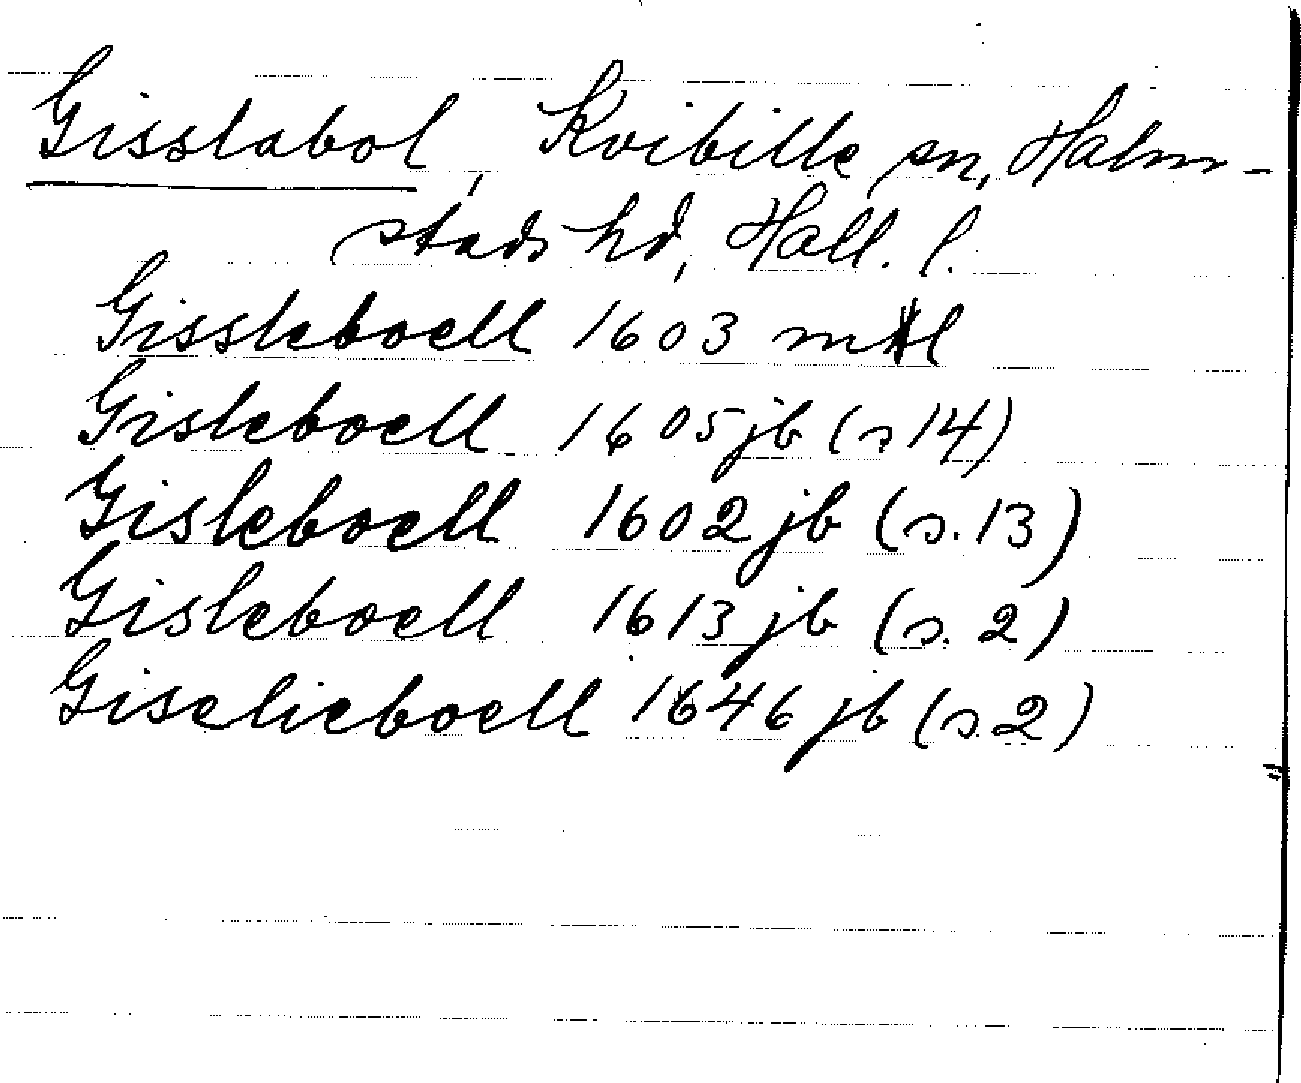 Gisslabol, Kvibille sn, Halm-
stads hd, Hall. l.
Gissleboell 1603 ml
Gisleboell 1605 jb (s 14)
Gisleboell 1602 jb (s. 13)
Gisleboell 1613 jb (s. 2)
Giselieboell 1646 jb (s. 2)